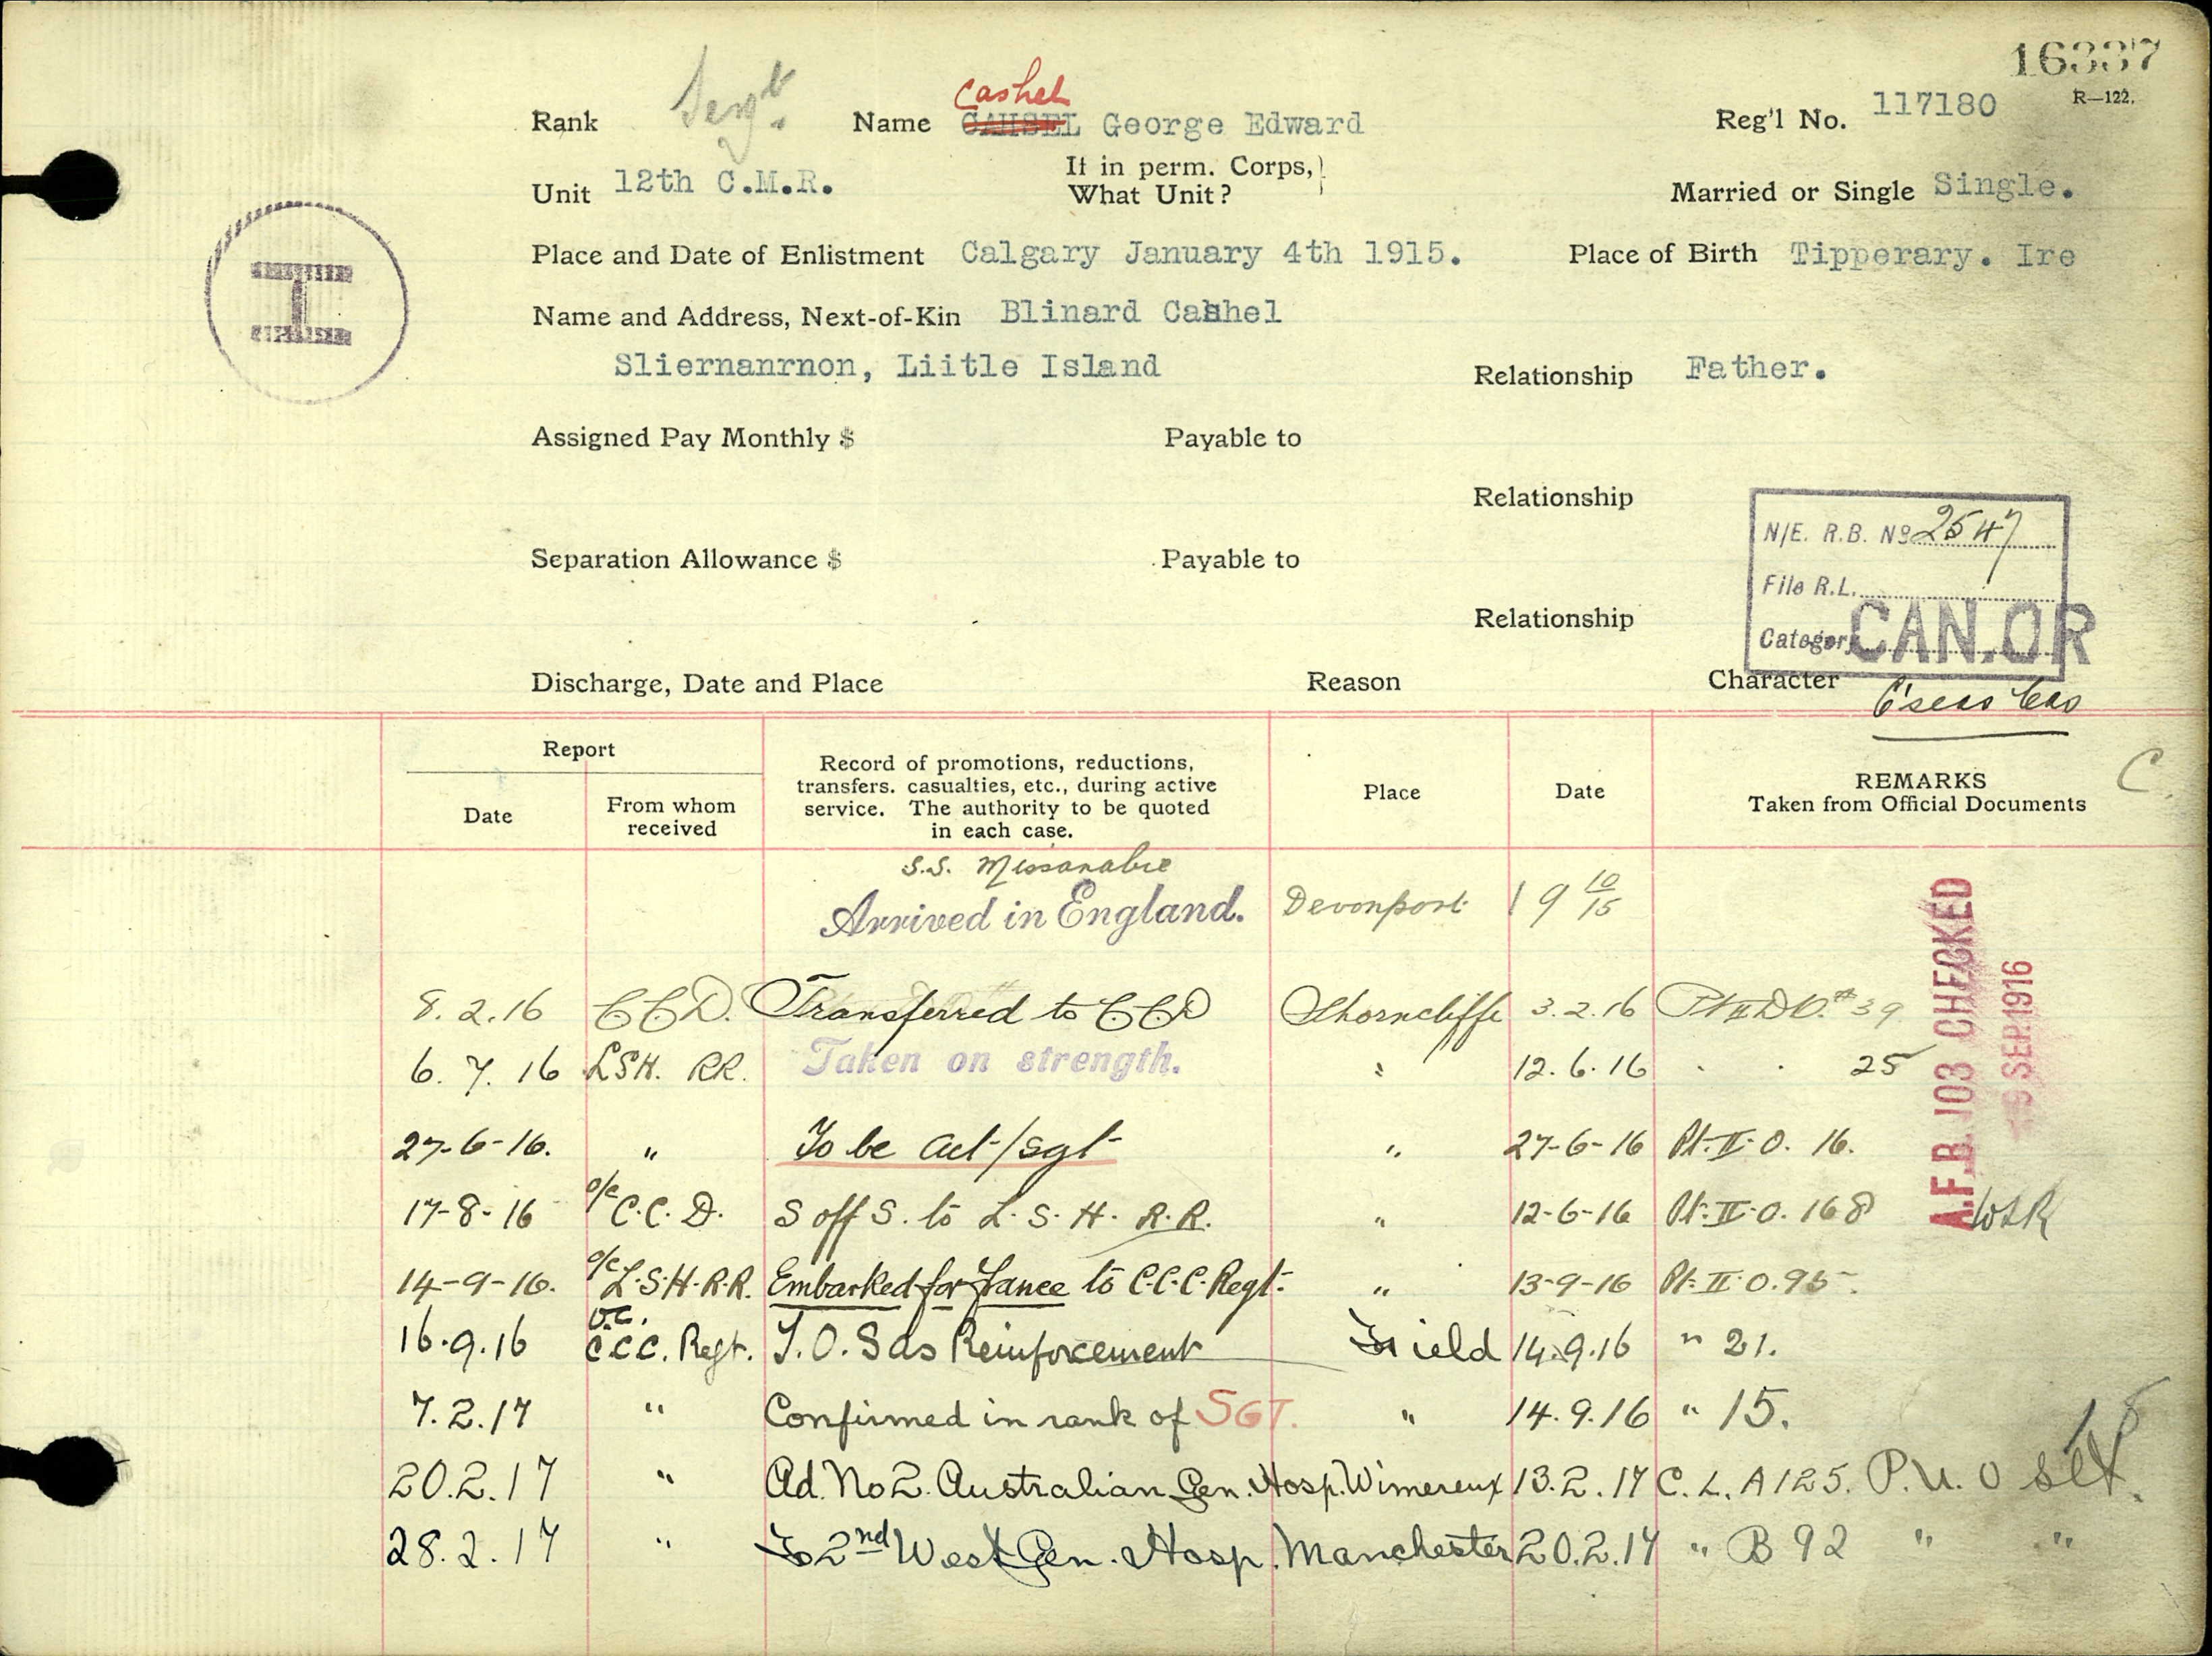 16337
R—122.
Rank Sergt. Name Cashel CAHSEL George Edward Reg'l No. 117180
Unit 12th C.M.R. If in perm. Corps, What Unit? Married or Single Single.
Place and Date of Enlistment Calgary January 4th 1915. Place of Birth Tipperary. Ire
I
Name and Address, Next-of-Kin Blinard Cashel
Sliernanrnon, Liitle Island Relationship Father.
Assigned Pay Monthly $ Payable to
Relationship
N/E. R.B. No 2547
Separation Allowance $ Payable to
File R.L.
Relationship
Category CAN.OR
Discharge, Date and Place Reason Character
Report
Date
From whom received
Record of promotions, reductions,
transfers. casualties, etc., during active
service. The authority to be quoted
in each case.
Place
Date
REMARKS
Taken from Official Documents
C
S.S. Missanabie
Arrived in England. Devonport 19 10/15
8.2.16 C.C.D. Transferred to CCD Shorncliffe 3.2.16 Pt II D.O. # 39
6.7.16 LSH. RR. Taken on strength. " 12.6.16 . . 25
27-6-16. " To be act/sgt " 27-6-16 Pt. II. O. 16.
17-8-16 o/c C.C.D. S off S. to L.S.H. R.R. " 12-6-16 Pt. II. O. 168
14-9-16. o/c L.S.H.R.R. Embarked for France to C.C.C. Regt. " 13-9-16 Pt. II. O. 95.
16.9.16 O.C. C.C.C. Regt. T.O.S as Reinforcement Field 14.9.16 " 21.
7.2.17 " Confirmed in rank of SGT. " 14.9.16 " 15.
20.2.17 " Ad. No 2. Australian Gen. Hosp. Wimereux 13.2.17 C.L. A125. P.U.O slt.
28.2.17 " To 2nd West Gen. Hosp. Manchester 20.2.17 " B92 " "
A.F.B. 103 CHECKED
SEP. 1916